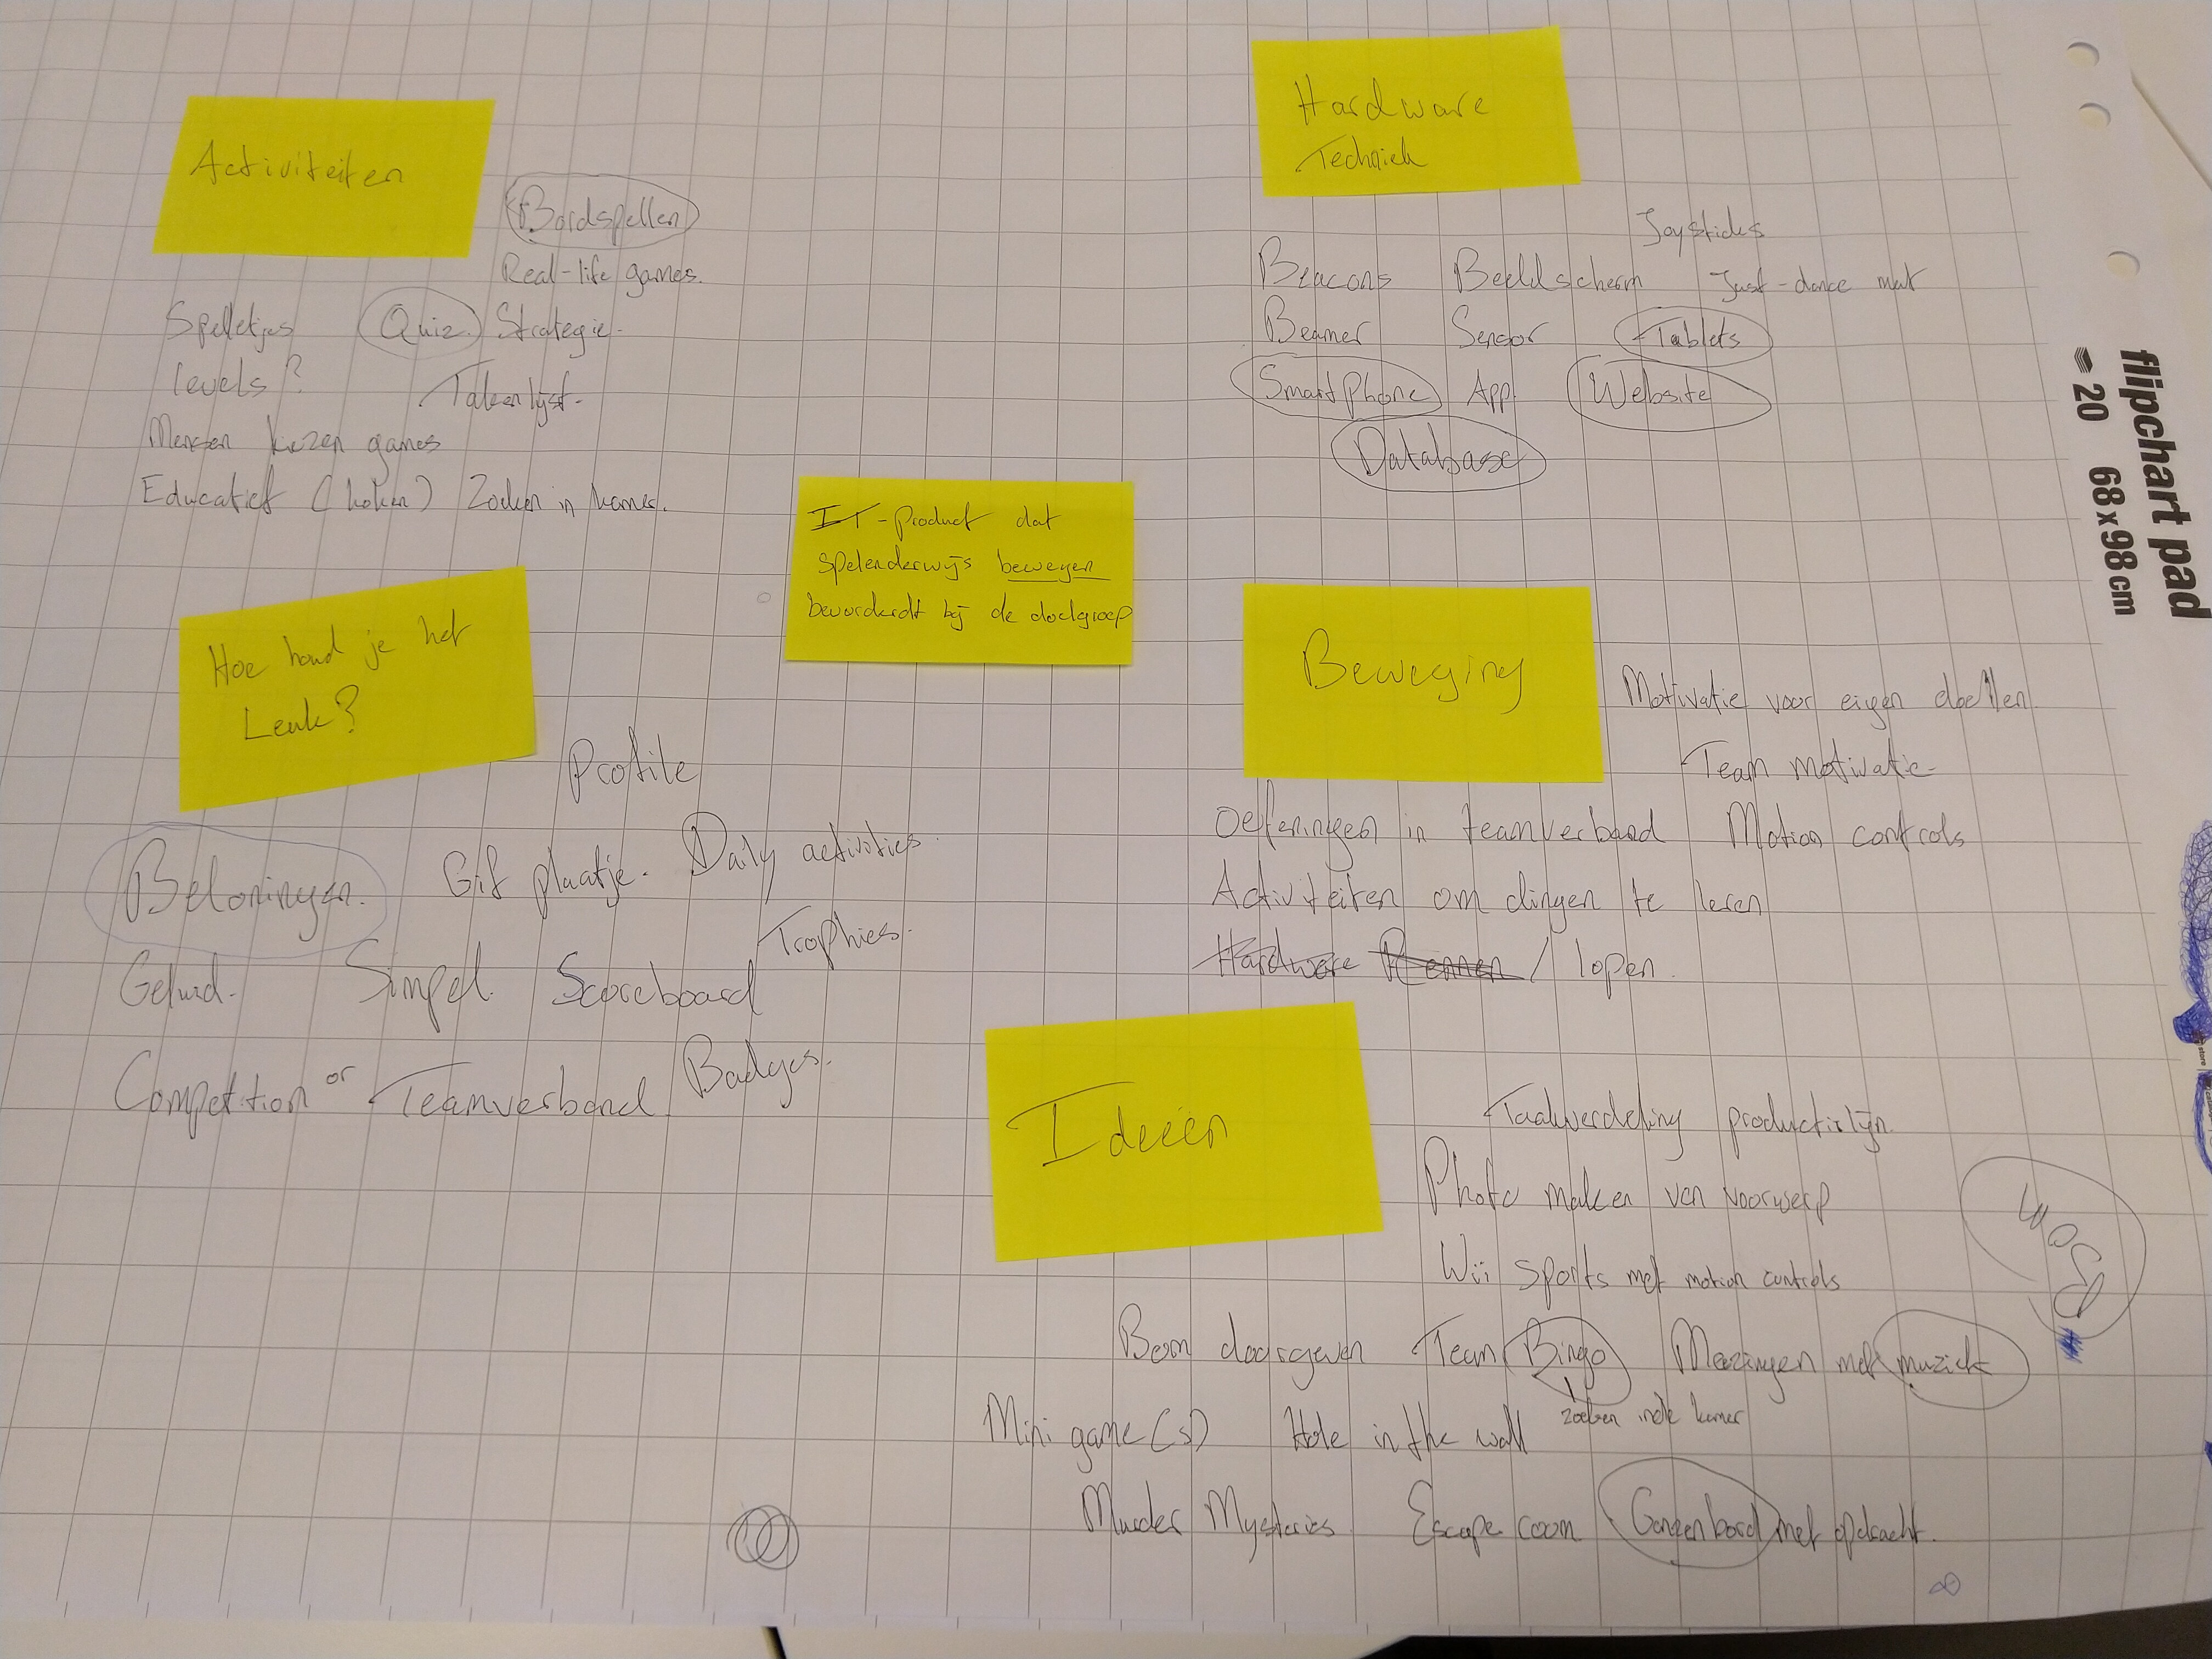 Activiteiten
Bordspellen
Real-life games.
Spelletjes Quiz. Strategie.
levels? Takenlijst.
Mensen kiezen games
Educatief (koken) Zoeken in kamer.
Hardware
Techniek
Joysticks
Beacons Beeldscherm Just-dance mat
Beamer Sensor Tablets
SmartPhone App Website
Database
IT-product dat
spelenderwijs bewegen
bevorderdt bij de doelgroep
Hoe houd je het
Leuk?
Profile
Beloningen. Gif plaatje. Daily activities.
Trophies.
Geluid. Simpel. Scoreboard
Competition or Teamverband Badges.
Beweging
Motivatie voor eigen doellen
Team motivatie
Oefeningen in teamverband Motion controls
Activiteiten om dingen te leren
Hardware Rennen / lopen.
Ideeën
Taakverdeling productielijn.
Photo maken van voorwerp
Wii Sports met motion controls
Boom doorgeven Team Bingo Meezingen met muziek
zoeken in de kamer
Mini game(s) Hole in the wall
Murder Mysteries Escape room Ganzenbord met opdracht.
flipchart pad
20 68x98cm